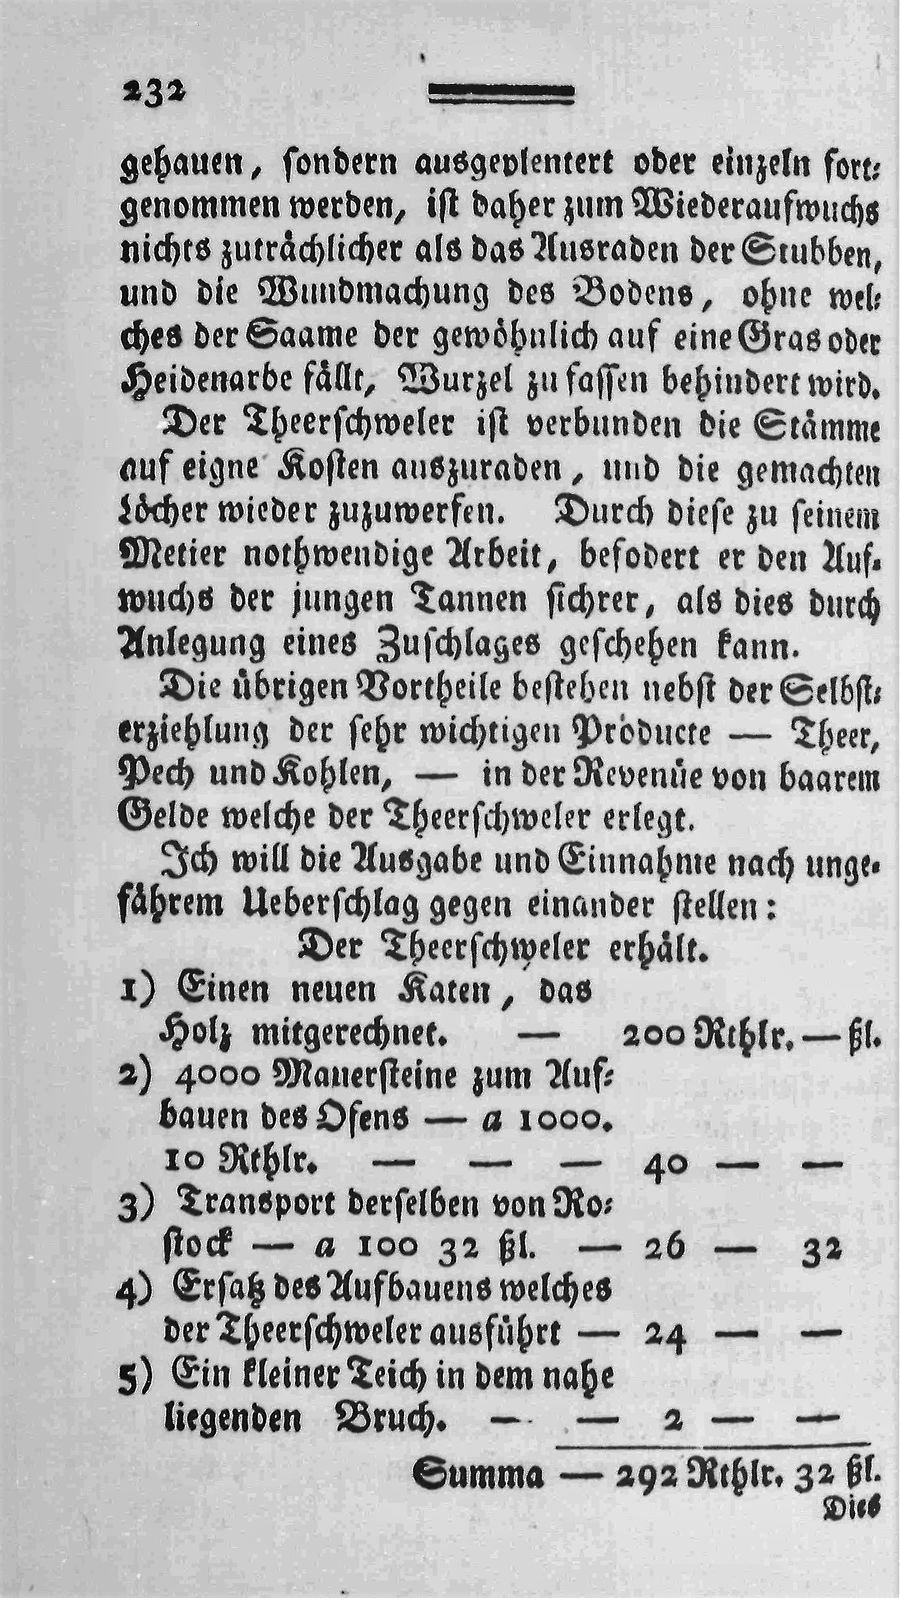 232
gehauen, sondern ausgeplentert oder einzeln fort-
genommen werden, ist daher zum Wiederaufwuchs
nichts zuträchlicher als das Ausraden der Stubben,
und die Wundmachung des Bodens, ohne wel-
ches der Saame der gewöhnlich auf eine Gras oder
Heidenarbe fällt, Wurzel zu fassen behindert wird.
Der Theerschweler ist verbunden die Stämme
auf eigne Kosten auszuraden, und die gemachten
Löcher wieder zuzuwerfen. Durch diese zu seinem
Metier nothwendige Arbeit, befodert er den Auf-
wuchs der jungen Tannen sichrer, als dies durch
Anlegung eines Zuschlages geschehen kann.
Die übrigen Vortheile bestehen nebst der Selbst-
erziehlung der sehr wichtigen Producte — Theer,
Pech und Kohlen, — in der Revenüe von baarem
Gelde welche der Theerschweler erlegt.
Ich will die Ausgabe und Einnahme nach unge-
fährem Ueberschlag gegen einander stellen:
Der Theerschweler erhält.
1) Einen neuen Katen, das
Holz mitgerechnet. — 200 Rthlr. — ßl.
2) 4000 Mauersteine zum Auf-
bauen des Ofens — a 1000.
10 Rthlr. — — — 40 — —
3) Transport derselben von Ro-
stock — a 100 32 ßl. — 26 — 32
4) Ersatz des Aufbauens welches
der Theerschweler ausführt — 24 — —
5) Ein kleiner Teich in dem nahe
liegenden Bruch. — — 2 — —
Summa — 292 Rthlr. 32 ßl.
Dies